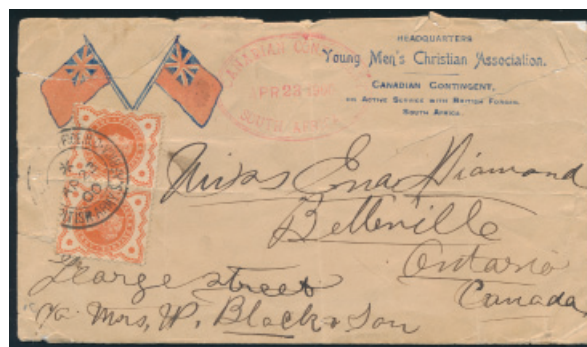 HEADQUARTERS
Young Men's Christian Association.
CANADIAN CONTINGENT,
ON ACTIVE SERVICE WITH BRITISH FORCES.
SOUTH AFRICA.
CANADIAN CON
APR 23 1900
SOUTH AFR
Miss Ena Diamond
Belleville
Ontario
Canada
George Street
c/o Mrs, W. Black & Son